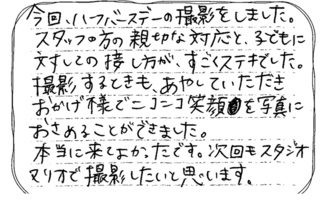 今回、ハーフバースデーの撮影をしました。
スタッフの方の親切な対応と、子どもに
対しての接し方が、すごくステキでした。
撮影するときも、あやしていただき
おかげ様でニコニコ笑顔を写真に
おさめることができました。
本当に来てよかったです。次回もスタジオ
マリオで撮影したいと思います。